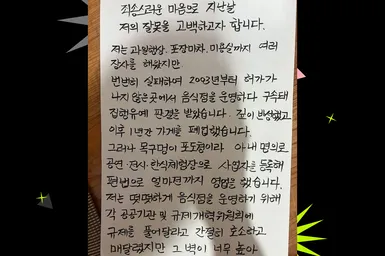 죄송스러운 마음으로 지난날
저의 잘못을 고백하고자 합니다.
저는 과일행상. 포장마차. 미용실까지 여러
장사를 해왔지만
번번히 실패하여 2003년부터 허가가
나지 않은곳에서 음식점을 운영하다 구속돼
집행유예 판결을 받았습니다. 깊이 반성했고
이후 1년간 가게를 폐업했습니다.
그러나 목구멍이 포도청이라 아내 명의로
공연·전시·한식체험장으로 사업자를 등록해
편법으로 얼마전까지 영업을 했습니다.
저는 떳떳하게 음식점을 운영하기 위해
각 공공기관 및 규제개혁위원회에
규제를 풀어달라고 간절히 호소하고
매달렸지만 그 벽이 너무 높아